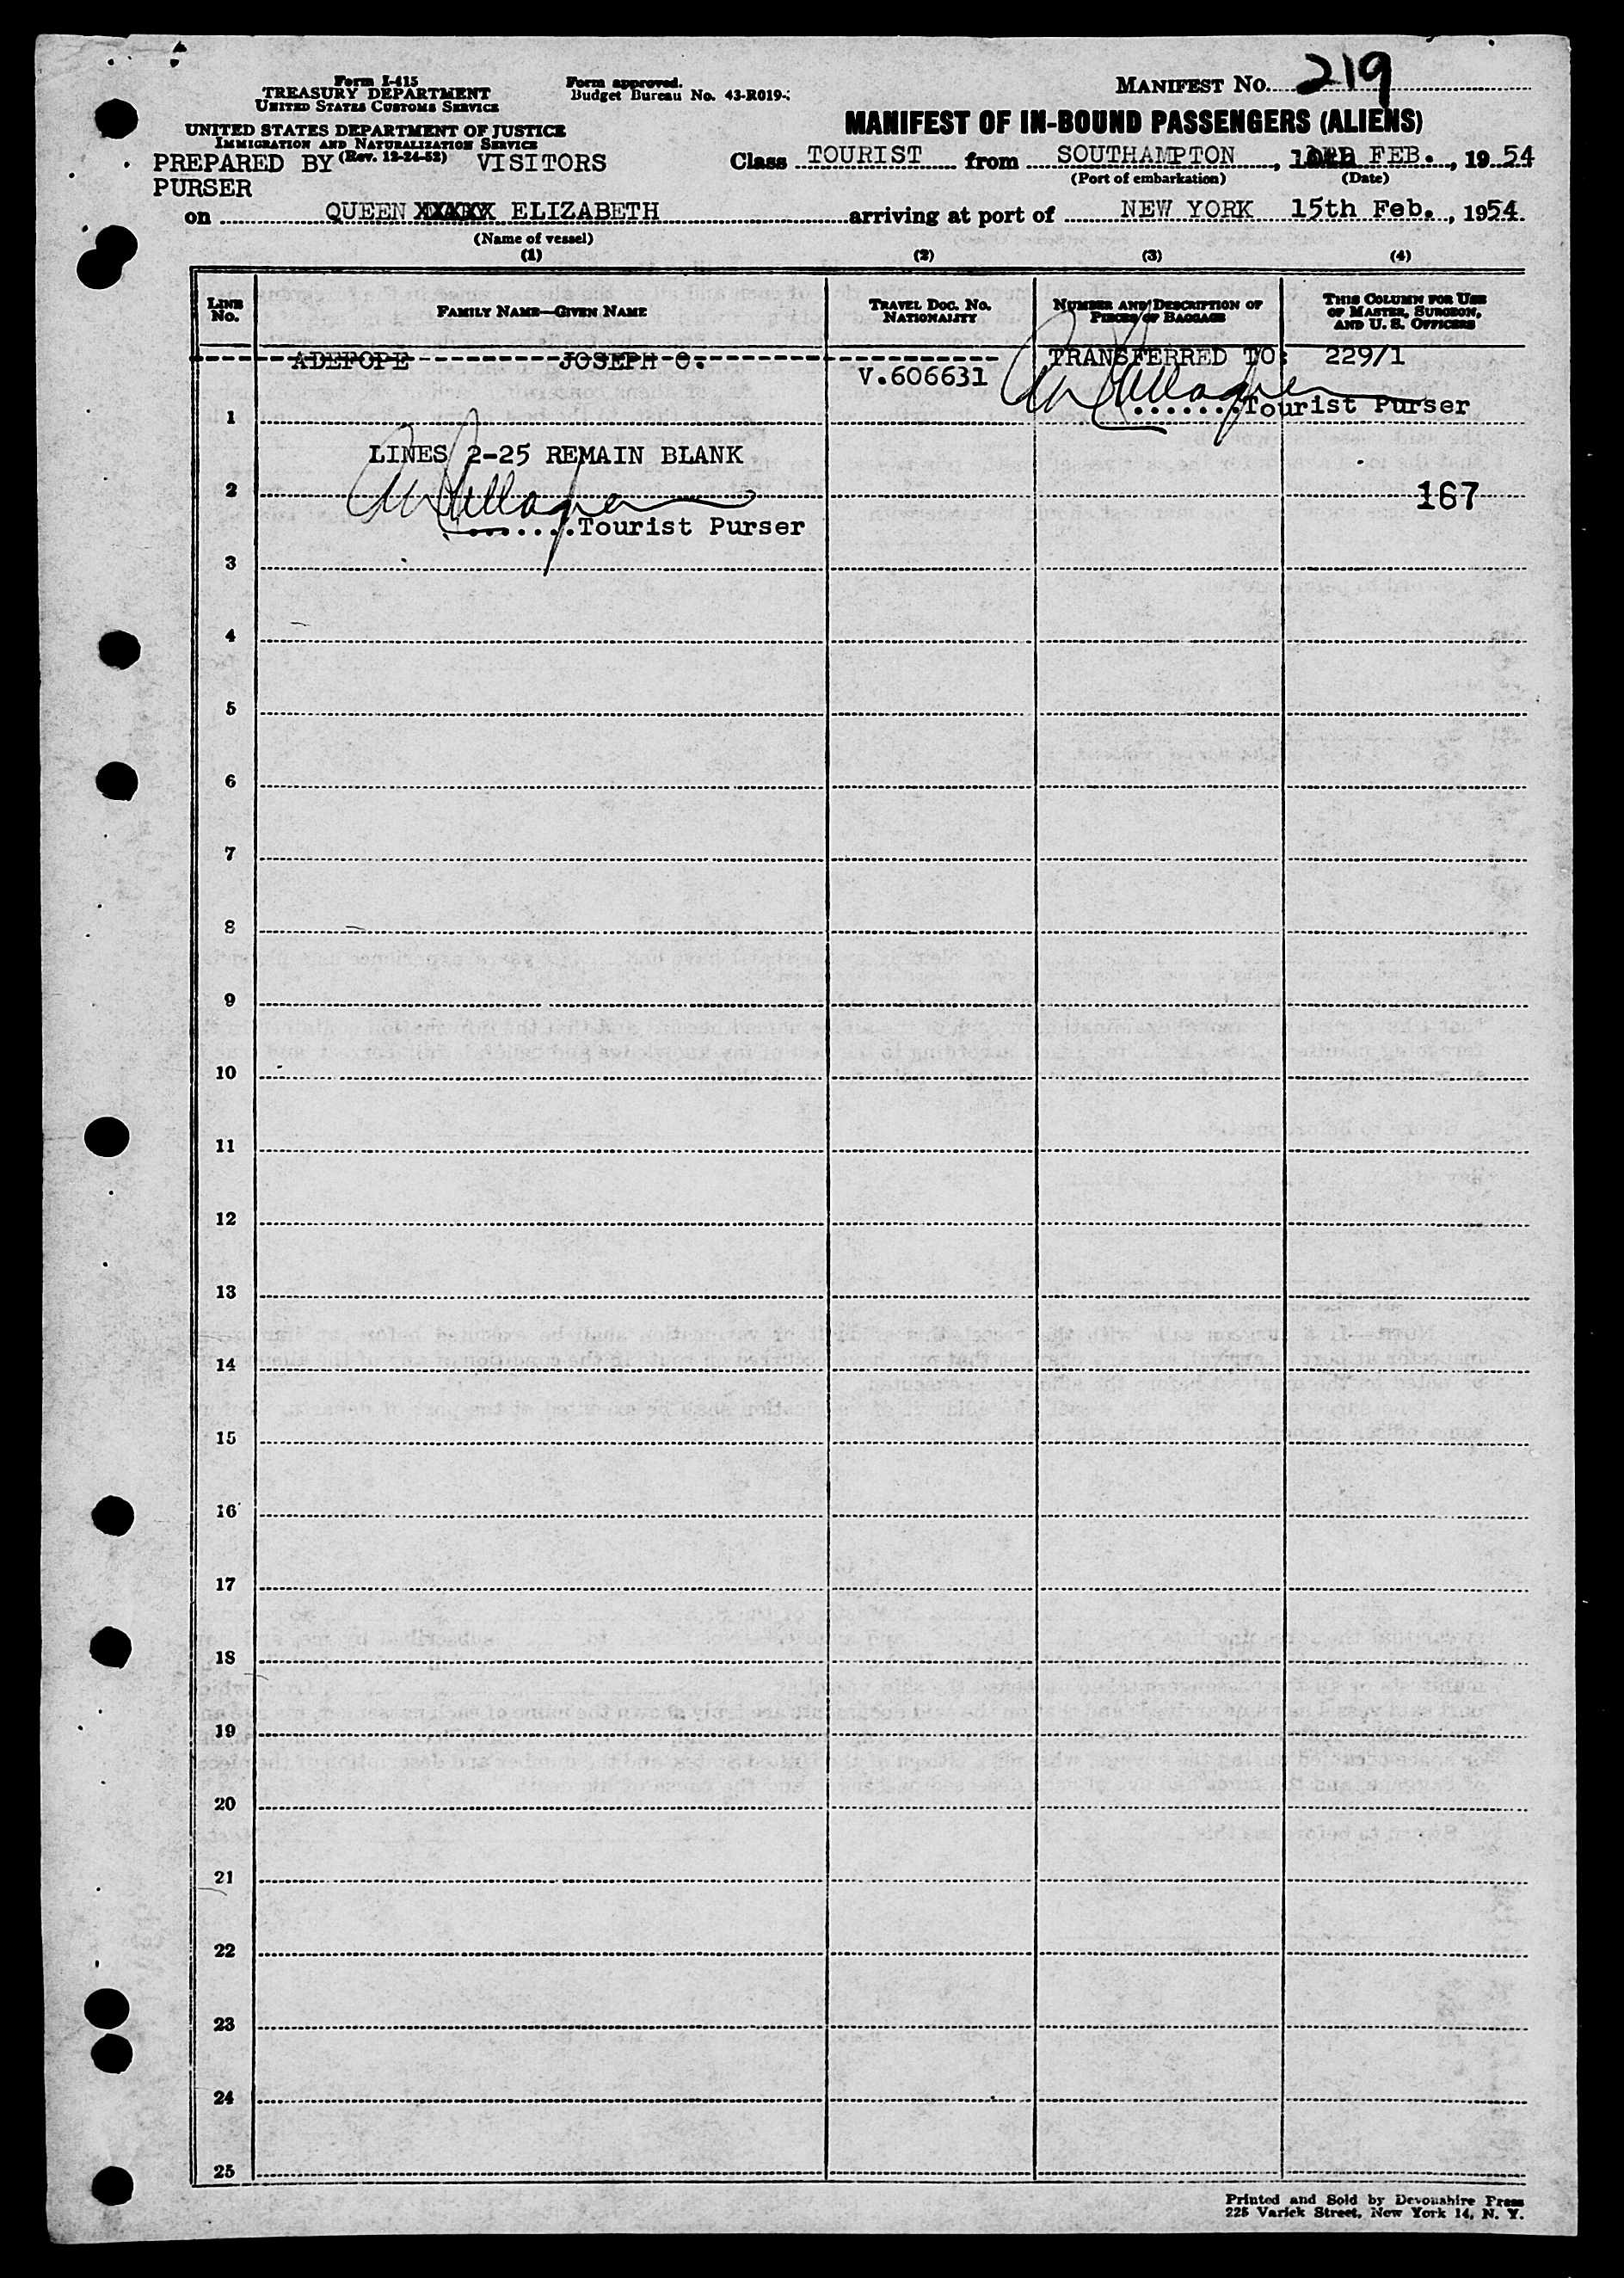 Form I-415
TREASURY DEPARTMENT
UNITED STATES CUSTOMS SERVICE
UNITED STATES DEPARTMENT OF JUSTICE
IMMIGRATION AND NATURALIZATION SERVICE
(Rev. 12-24-52)
Form approved.
Budget Bureau No. 43-R019-
PREPARED BY VISITORS
PURSER
MANIFEST NO. 219
MANIFEST OF IN-BOUND PASSENGERS (ALIENS)
Class TOURIST from SOUTHAMPTON, FEB., 1954
(Port of embarkation) (Date)
on QUEEN XXXXX ELIZABETH arriving at port of NEW YORK 15th Feb., 1954
(Name of vessel)
(1) (2) (3) (4)
LINE NO.
FAMILY NAME—GIVEN NAME
TRAVEL DOC. NO.
NATIONALITY
NUMBER AND DESCRIPTION OF
PIECES OF BAGGAGE
THIS COLUMN FOR USE
OF MASTER, SURGEON,
AND U. S. OFFICERS
ADEFOPE JOSEPH O. TRANSFERRED TO: 229/1
V.606631
.......Tourist Purser
1
LINES 2-25 REMAIN BLANK
2 167
.......Tourist Purser
3
4
5
6
7
8
9
10
11
12
13
14
15
16
17
18
19
20
21
22
23
24
25
Printed and Sold by Devonshire Press
225 Varick Street, New York 14, N. Y.